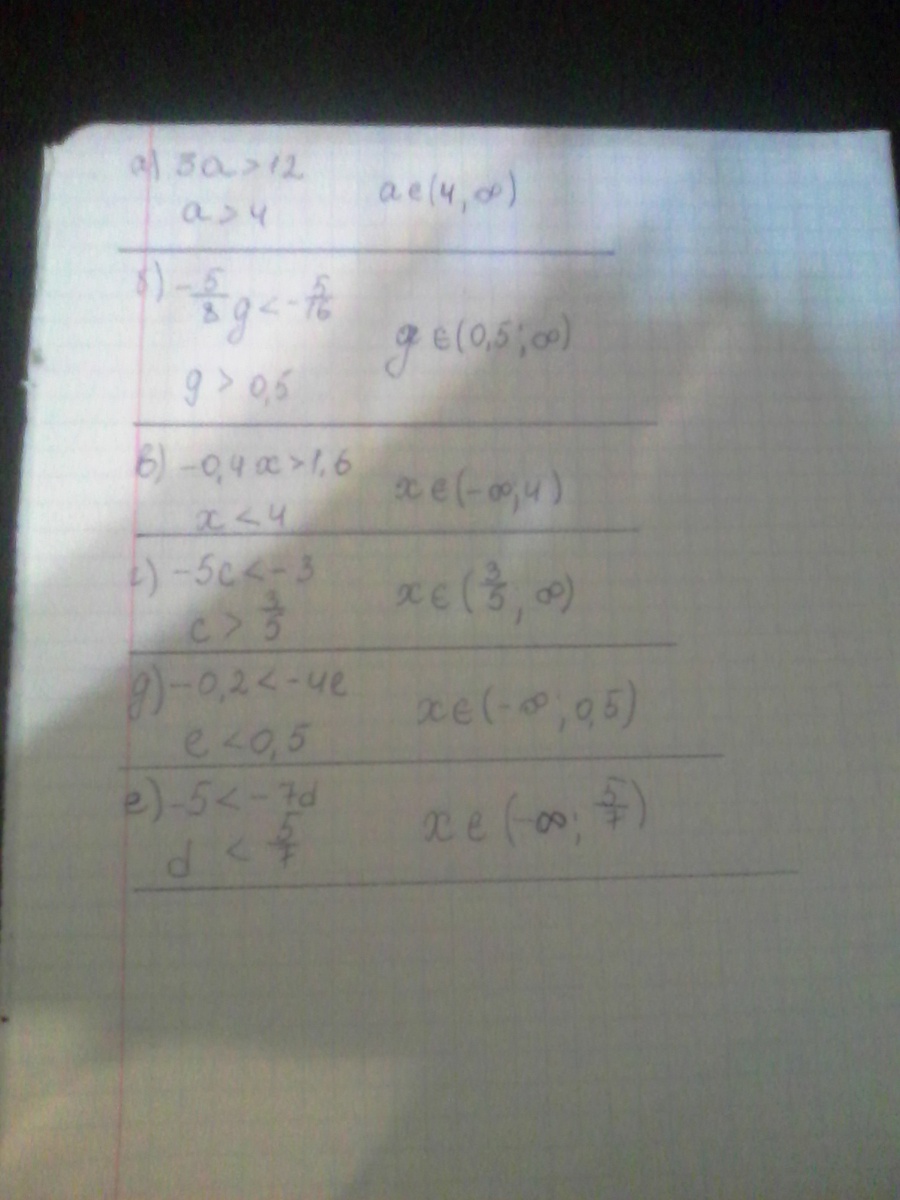 а) 3a > 12
a ∈ (4, ∞)
a > 4
б) -5/8 g < -5/16
g ∈ (0,5; ∞)
g > 0,5
в) -0,4x > 1,6
x ∈ (-∞, 4)
x < 4
г) -5c < -3
x ∈ (3/5, ∞)
c > 3/5
д) -0,2 < -4e
x ∈ (-∞; 0,5)
e < 0,5
е) -5 < -7d
x ∈ (-∞; 5/7)
d < 5/7